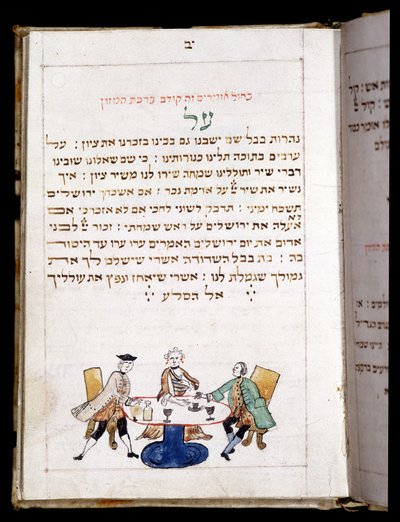 יב
בחול אומרים זה קודם ברכת המזון
על
נהרות בבל שם ישבנו גם בכינו בזכרנו את ציון : על
ערבים בתוכה תלינו כנורותינו : כי שם שאלונו שובינו
דברי שיר ותוללינו שמחה שירו לנו משיר ציון : איך
נשיר את שיר יי על אדמת נכר : אם אשכחך ירושלים
תשכח ימיני : תדבק לשוני לחכי אם לא אזכרכי אם
לא
אעלה את ירושלים על ראש שמחתי : זכור יי לבני
אדום את יום ירושלים האמרים ערו ערו עד היסוד
בה : בת בבל השדודה אשרי שישלם לך את
גמולך שגמלת לנו : אשרי שיאחז ונפץ את עולליך
אל הסלע